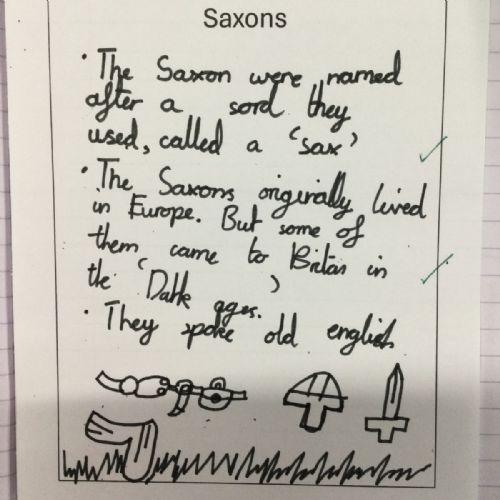 Saxons
· The Saxon were named
after a sord they
used, called a 'sax'
· The Saxons originally lived
in Europe. But some of
them came to Britan in
the 'Dark ages.'
· They spoke old english